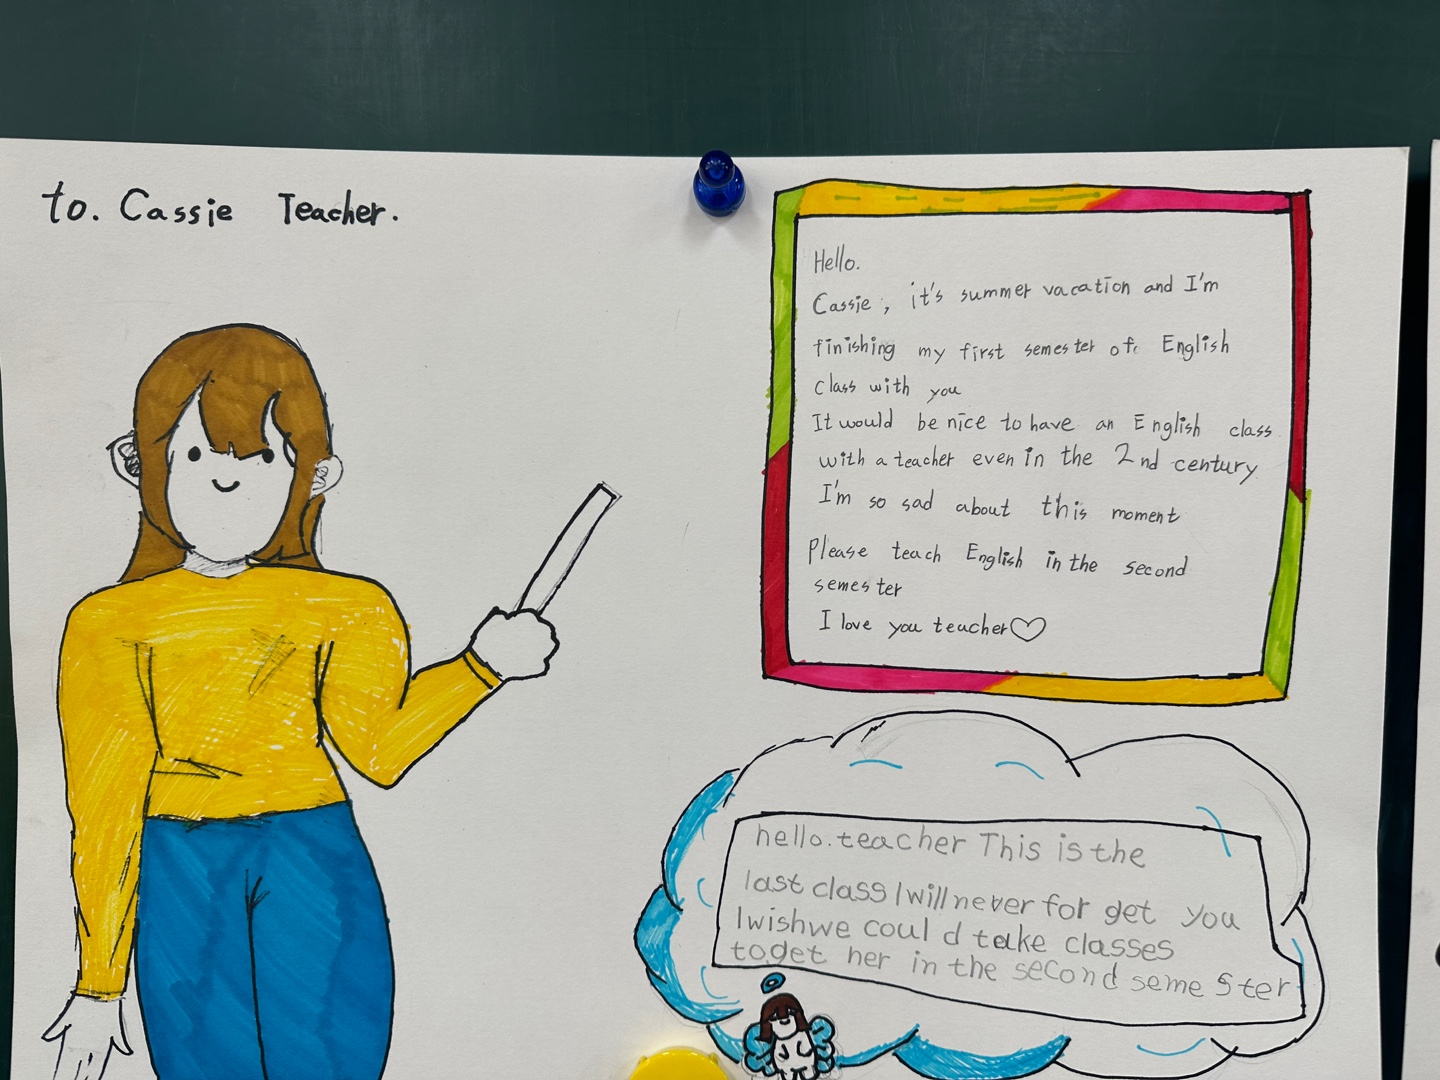 to. Cassie Teacher.
Hello.
Cassie, it's summer vacation and I'm
finishing my first semester of English
class with you
It would be nice to have an English class
with a teacher even in the 2nd century
I'm so sad about this moment
Please teach English in the second
semester
I love you teacher♡
hello. teacher This is the
last class I will never for get you
I wish we coul d take classes
toget her in the second seme ster